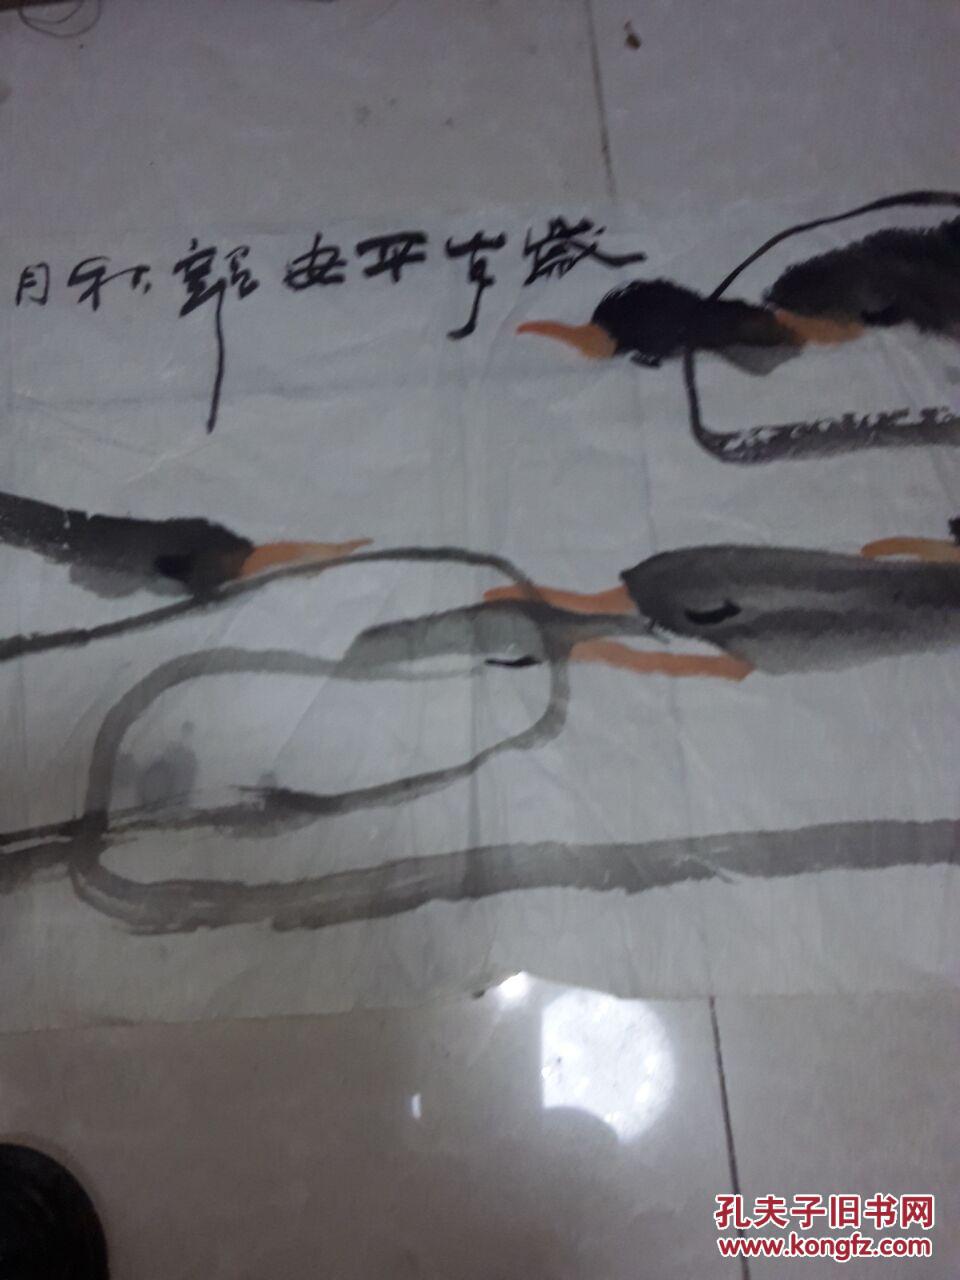 歲平安秋月
孔夫子旧书网
www.kongfz.com